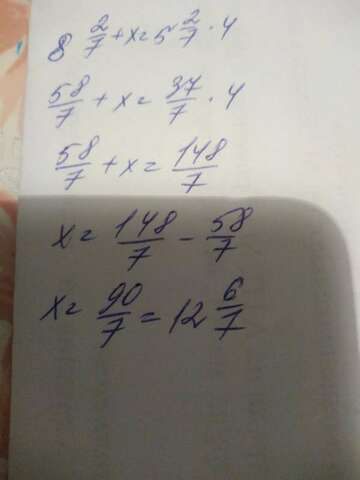 8 2/7 + x = 5 2/7 · 4
58/7 + x = 37/7 · 4
58/7 + x = 148/7
x = 148/7 - 58/7
x = 90/7 = 12 6/7